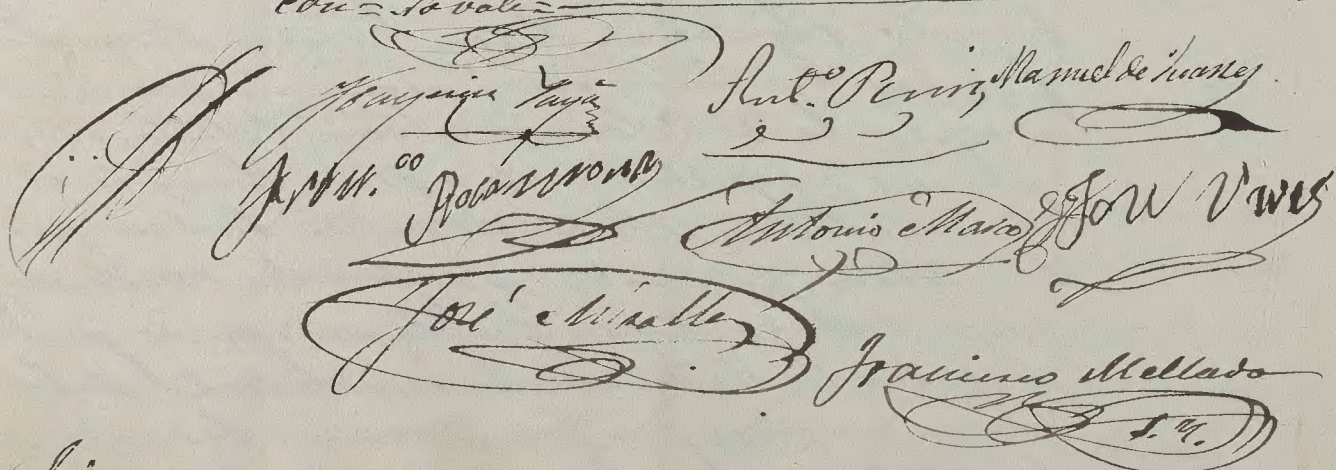 con = no vale =
Payá Ant.o Manuel de Juanes
Fran.co Rocamora Antonio Marco José Vives
José Miralles
Francisco Mellado
S. N.